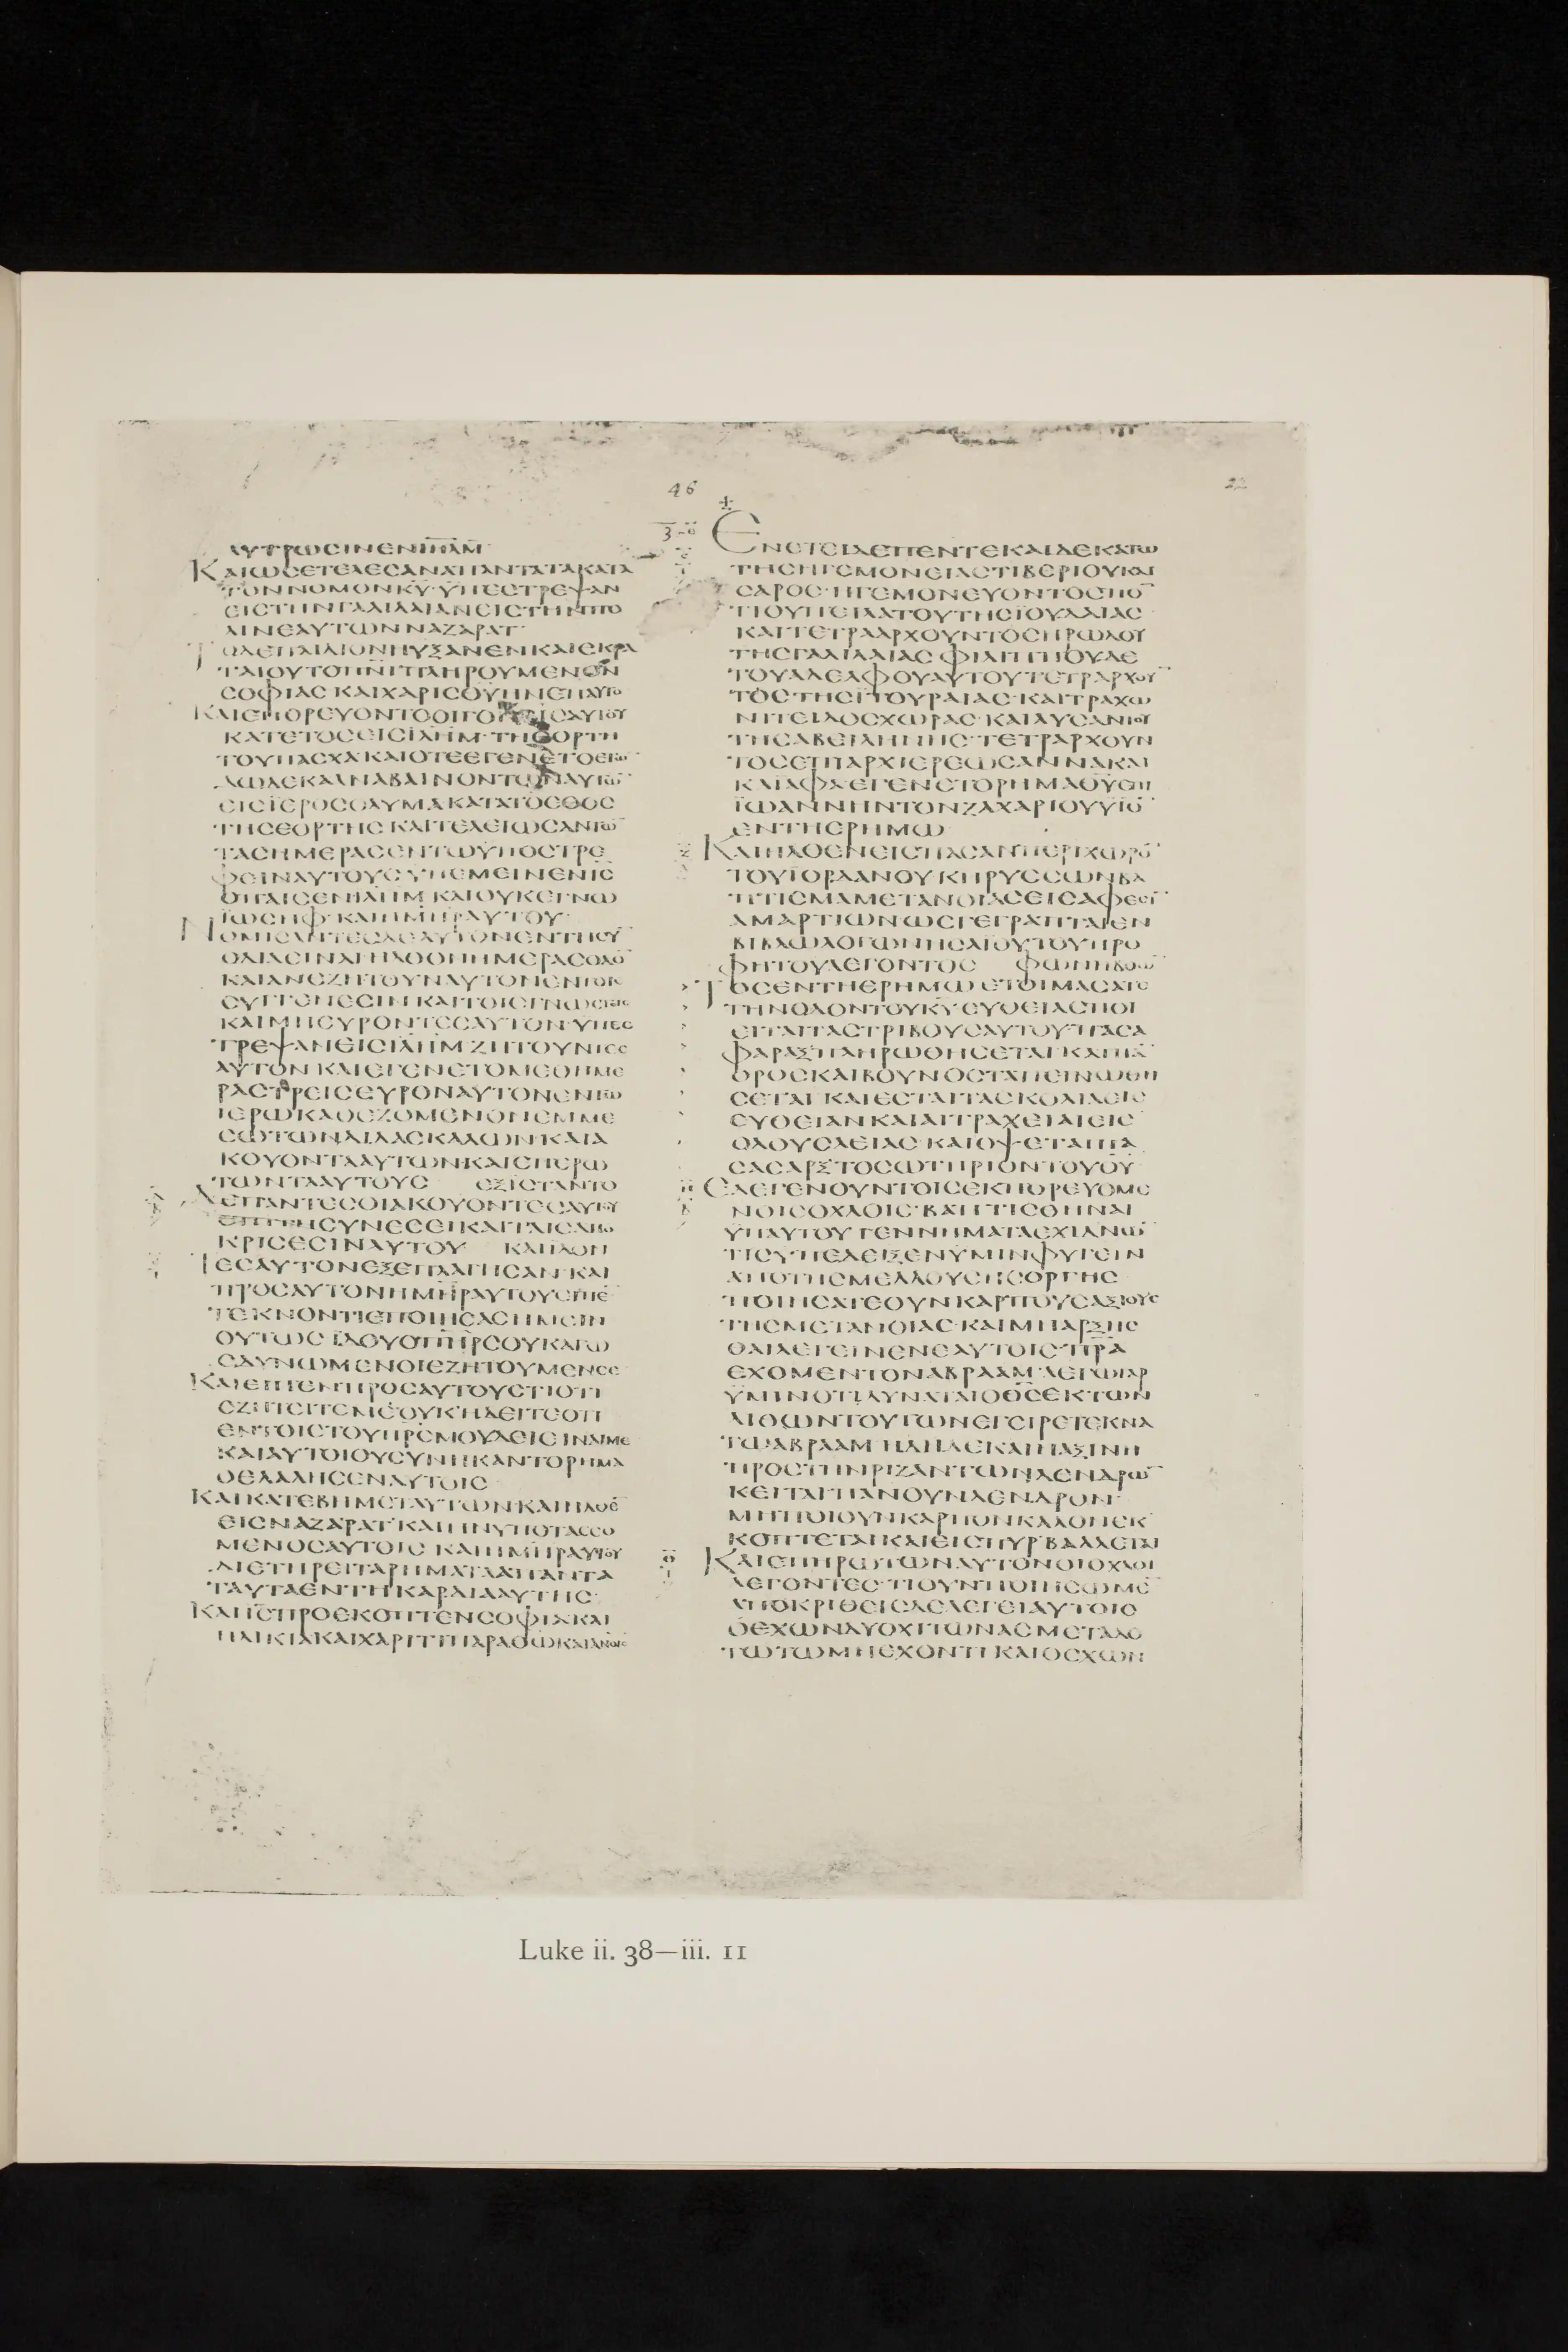 46
ΛΥΤΡΩCΙΝΕΝΙΗΛΜ
ΚΑΙΩCΕΤΕΛΕCΑΝΑΠΑΝΤΑΤΑΚΑΤΑ
ΤΟΝΝΟΜΟΝΚΥ·ΫΠΕCΤΡΕΨΑΝ
ΕΙCΤΗΝΓΑΛΙΛΑΙΑΝΕΙCΤΗΝΠΟ
ΛΙΝΕΑΥΤΩΝΝΑΖΑΡΑΤ·
ΤΟΔΕΠΑΙΔΙΟΝΗΥΞΑΝΕΝΚΑΙΕΚΡΑ
ΤΑΙΟΥΤΟΠΝΙΠΛΗΡΟΥΜΕΝΟΝ
CΟΦΙΑC ΚΑΙΧΑΡΙCΘΥΗΝΕΠΑΥΤΟ
ΚΑΙΕΠΟΡΕΥΟΝΤΟΟΙΓΟΝΕΙCΑΥΤΟΥ
ΚΑΤΕΤΟCΕΙCΙΛΗΜ·ΤΗΕΟΡΤΗ
ΤΟΥΠΑCΧΑ ΚΑΙΟΤΕΕΓΕΝΕΤΟΕΤΩ
ΔΩΔΕΚΑΑΝΑΒΑΙΝΟΝΤΩΝΑΥΤΩ
ΕΙCΪΕΡΟCΟΛΥΜΑΚΑΤΑΤΟΕΘΟC
ΤΗCΕΟΡΤΗC ΚΑΙΤΕΛΕΙΩCΑΝΤΩ
ΤΑCΗΜΕΡΑCΕΝΤΩΫΠΟCΤΡΕ
ΦΕΙΝΑΥΤΟΥCΫΠΕΜΕΙΝΕΝΙC
ΟΠΑΙCΕΝΙΛΗΜ ΚΑΙΟΥΚΕΓΝΩ
ΪΩCΗΦ·ΚΑΙΗΜΗΡΑΥΤΟΥ·
ΝΟΜΙCΑΝΤΕCΔΕΑΥΤΟΝΕΝΤΗCΥ
ΟΔΙΑΕΙΝΑΙΗΛΘΟΝΗΜΕΡΑCΟΔΟ
ΚΑΙΑΝΕΖΗΤΟΥΝΑΥΤΟΝΕΝΤΟΙC
CΥΓΓΕΝΕCΙΝ ΚΑΙΤΟΙCΓΝΩCΤΟΙC
ΚΑΙΜΗΕΥΡΟΝΤΕCΑΥΤΟΝ·ΫΠΕC
ΤΡΕΨΑΝΕΙCΙΛΗΜ ΖΗΤΟΥΝΤΕC
ΑΥΤΟΝ ΚΑΙΕΓΕΝΕΤΟΜΕΘΗΜΕ
ΡΑCΤΡΕΙCΕΥΡΟΝΑΥΤΟΝΕΝΤΩ
ΙΕΡΩΚΑΘΕΖΟΜΕΝΟΝΕΜΜΕ
CΩΤΩΝΔΙΔΑCΚΑΛΩΝ·ΚΑΙΑ
ΚΟΥΟΝΤΑΑΥΤΩΝ·ΚΑΙΕΠΕΡΩ
ΤΩΝΤΑΑΥΤΟΥC ΕΞΙCΤΑΝΤΟ
ΔΕΠΑΝΤΕCΟΙΑΚΟΥΟΝΤΕCΑΥΤΟΥ
ΕΠΙΤΗCΥΝΕCΕΙΚΑΙΤΑΙCΑΠΟ
ΚΡΙCΕCΙΝΑΥΤΟΥ ΚΑΙΪΔΟΝ
ΤΕCΑΥΤΟΝΕΞΕΠΛΑΓΗCΑΝ·ΚΑΙ
ΠΡΟCΑΥΤΟΝΗΜΗΡΑΥΤΟΥΕΙΠΕ
ΤΕΚΝΟΝΤΙΕΠΟΙΗCΑCΗΜΙΝ
ΟΥΤΩC ΪΔΟΥΟΠΗΡCΟΥΚΑΓΩ
ΟΔΥΝΩΜΕΝΟΙΕΖΗΤΟΥΜΕΝCΕ
ΚΑΙΕΙΠΕΝΠΡΟCΑΥΤΟΥCΤΙΟΤΙ
ΕΖΗΤΕΙΤΕΜΕΟΥΚΗΔΕΙΤΕΟΤΙ
ΕΝΤΟΙCΤΟΥΠΡCΜΟΥΔΕΙΕΙΝΑΙΜΕ
ΚΑΙΑΥΤΟΙΟΥCΥΝΗΚΑΝΤΟΡΗΜΑ
ΟΕΛΑΛΗCΕΝΑΥΤΟΙC
ΚΑΙΚΑΤΕΒΗΜΕΤΑΥΤΩΝ·ΚΑΙΗΛΘΕ
ΕΙCΝΑΖΑΡΑΤ·ΚΑΙΗΝΥΠΟΤΑCCΟ
ΜΕΝΟCΑΥΤΟΙC ΚΑΙΗΜΗΡΑΥΤΟΥ
ΔΙΕΤΗΡΕΙΤΑΡΗΜΑΤΑΑΠΑΝΤΑ
ΤΑΥΤΑΕΝΤΗΚΑΡΔΙΑΑΥΤΗC·
ΚΑΙΙCΠΡΟΕΚΟΠΤΕΝCΟΦΙΑΚΑΙ
ΗΛΙΚΙΑΚΑΙΧΑΡΙΤΙΠΑΡΑΘΩΚΑΙΑΝΟΙC
ΕΝΕΤΕΙΔΕΠΕΝΤΕΚΑΙΔΕΚΑΤΩ
ΤΗCΗΓΕΜΟΝΕΙΑCΤΙΒΕΡΙΟΥΚΑΙ
CΑΡΟC·ΗΓΕΜΟΝΕΥΟΝΤΟCΠΟ
ΤΙΟΥΠΕΙΛΑΤΟΥΤΗCΪΟΥΔΑΙΑC
ΚΑΙΤΕΤΡΑΑΡΧΟΥΝΤΟCΗΡΩΔΟΥ
ΤΗCΓΑΛΙΛΑΙΑC ΦΙΛΙΠΠΟΥΔΕ
ΤΟΥΑΔΕΛΦΟΥΑΥΤΟΥΤΕΤΡΑΡΧΟΥ
ΤΟCΤΗCΪΤΟΥΡΑΙΑC·ΚΑΙΤΡΑΧΩ
ΝΙΤΕΙΔΟCΧΩΡΑC·ΚΑΙΛΥCΑΝΙΟΥ
ΤΗCΑΒΕΙΛΗΝΗC·ΤΕΤΡΑΡΧΟΥΝ
ΤΟCΕΠΙΑΡΧΙΕΡΕΩCΑΝΝΑΚΑΙ
ΚΑΪΑΦΑ·ΕΓΕΝΕΤΟΡΗΜΑΘΥΕΠΙ
ΪΩΑΝΝΗΝΤΟΝΖΑΧΑΡΙΟΥΥΪΟ
ΕΝΤΗΕΡΗΜΩ
ΚΑΙΗΛΘΕΝΕΙCΠΑCΑΝΠΕΡΙΧΩΡΟ
ΤΟΥΪΟΡΔΑΝΟΥ ΚΗΡΥCCΩΝΒΑ
ΠΤΙCΜΑΜΕΤΑΝΟΙΑCΕΙCΑΦΕCΙ
ΑΜΑΡΤΙΩΝΩCΓΕΓΡΑΠΤΑΙΕΝ
ΒΙΒΛΩΛΟΓΩΝΗCΑΪΟΥΤΟΥΠΡΟ
ΦΗΤΟΥΛΕΓΟΝΤΟC ΦΩΝΗΒΟΩ
ΤΟCΕΝΤΗΕΡΗΜΩ ΕΤΟΙΜΑCΑΤΕ
ΤΗΝΟΔΟΝΤΟΥΚΥ ΕΥΘΕΙΑCΠΟΙ
ΕΙΤΑΙΤΑCΤΡΙΒΟΥCΑΥΤΟΥ·ΠΑCΑ
ΦΑΡΑΞΠΛΗΡΩΘΗCΕΤΑΙ·ΚΑΙΠΑ
ΟΡΟCΚΑΙΒΟΥΝΟCΤΑΠΕΙΝΩΘΗ
CΕΤΑΙ ΚΑΙΕCΤΑΙΤΑCΚΟΛΙΑΕΙC
ΕΥΘΕΙΑΝ·ΚΑΙΑΙΤΡΑΧΕΙΑΙΕΙC
ΟΔΟΥCΛΕΙΑC·ΚΑΙΟΨΕΤΑΙΠΑ
CΑCΑΡΞΤΟCΩΤΗΡΙΟΝΤΟΥΘΥ
ΕΛΕΓΕΝΟΥΝΤΟΙCΕΚΠΟΡΕΥΟΜΕ
ΝΟΙCΟΧΛΟΙC·ΒΑΠΤΙCΘΗΝΑΙ
ΫΠΑΥΤΟΥ ΓΕΝΝΗΜΑΤΑΕΧΙΔΝΩ
ΤΙCΥΠΕΔΕΙΞΕΝΫΜΙΝΦΥΓΕΙΝ
ΑΠΟΤΗCΜΕΛΛΟΥCΗCΟΡΓΗC
ΠΟΙΗCΑΤΕΟΥΝΚΑΡΠΟΥCΑΞΙΟΥC
ΤΗCΜΕΤΑΝΟΙΑC·ΚΑΙΜΗΑΡΞΗC
ΘΑΙΛΕΓΕΙΝΕΝΕΑΥΤΟΙC·ΠΡΑ
ΕΧΟΜΕΝΤΟΝΑΒΡΑΑΜ ΛΕΓΩΓΑΡ
ΫΜΙΝΟΤΙΔΥΝΑΤΑΙΟΘCΕΚΤΩΝ
ΛΙΘΩΝΤΟΥΤΩΝΕΓΕΙΡΕΤΕΚΝΑ
ΤΩΑΒΡΑΑΜ ΗΔΗΔΕΚΑΙΗΑΞΙΝΗ
ΠΡΟCΤΗΝΡΙΖΑΝΤΩΝΔΕΝΔΡΩ
ΚΕΙΤΑΙΠΑΝΟΥΝΔΕΝΔΡΟΝ
ΜΗΠΟΙΟΥΝΚΑΡΠΟΝΚΑΛΟΝΕΚ
ΚΟΠΤΕΤΑΙΚΑΙΕΙCΠΥΡΒΑΛΛΕΤΑΙ
ΚΑΙΕΠΗΡΩΤΩΝΑΥΤΟΝΟΙΟΧΛΟΙ
ΛΕΓΟΝΤΕC·ΤΙΟΥΝΠΟΙΗCΩΜΕ
ΑΠΟΚΡΙΘΕΙCΔΕΛΕΓΕΙΑΥΤΟΙC
ΟΕΧΩΝΔΥΟΧΙΤΩΝΑCΜΕΤΑΔΟ
ΤΩΤΩΜΗΕΧΟΝΤΙ·ΚΑΙΟΕΧΩΝ
Luke ii. 38—iii. 11